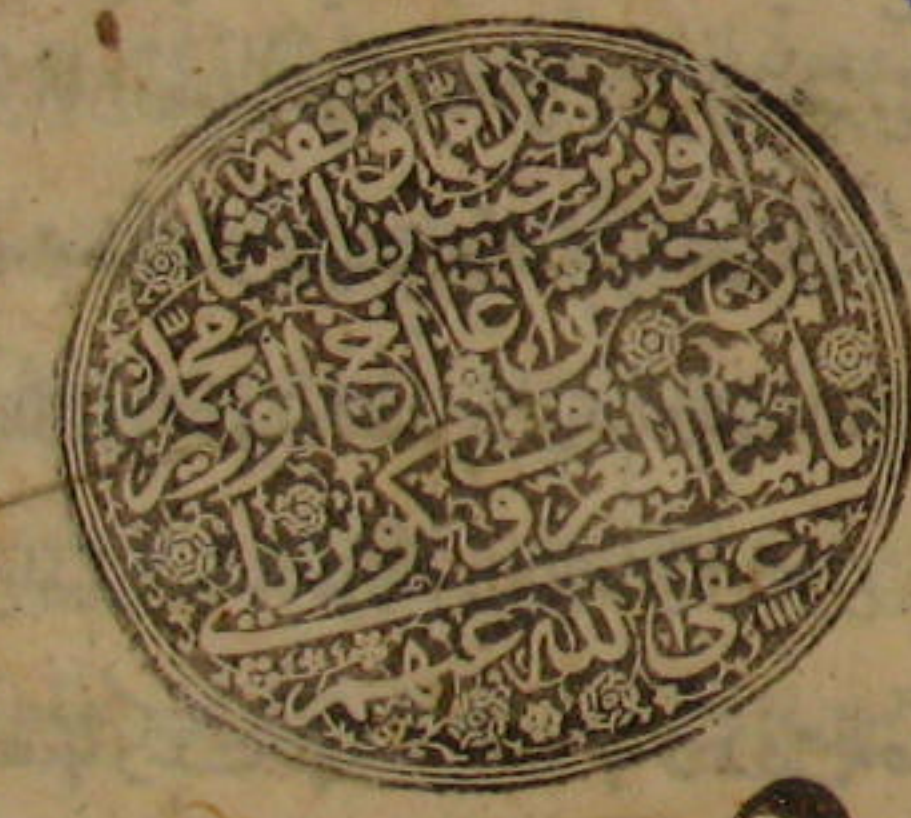 هذا مما وقفه
الوزير حسين باشا
ابن حسن اغا اخ الوزير محمد
باشا المعروف بكوپريلى
عفى الله عنهم ١١١٢